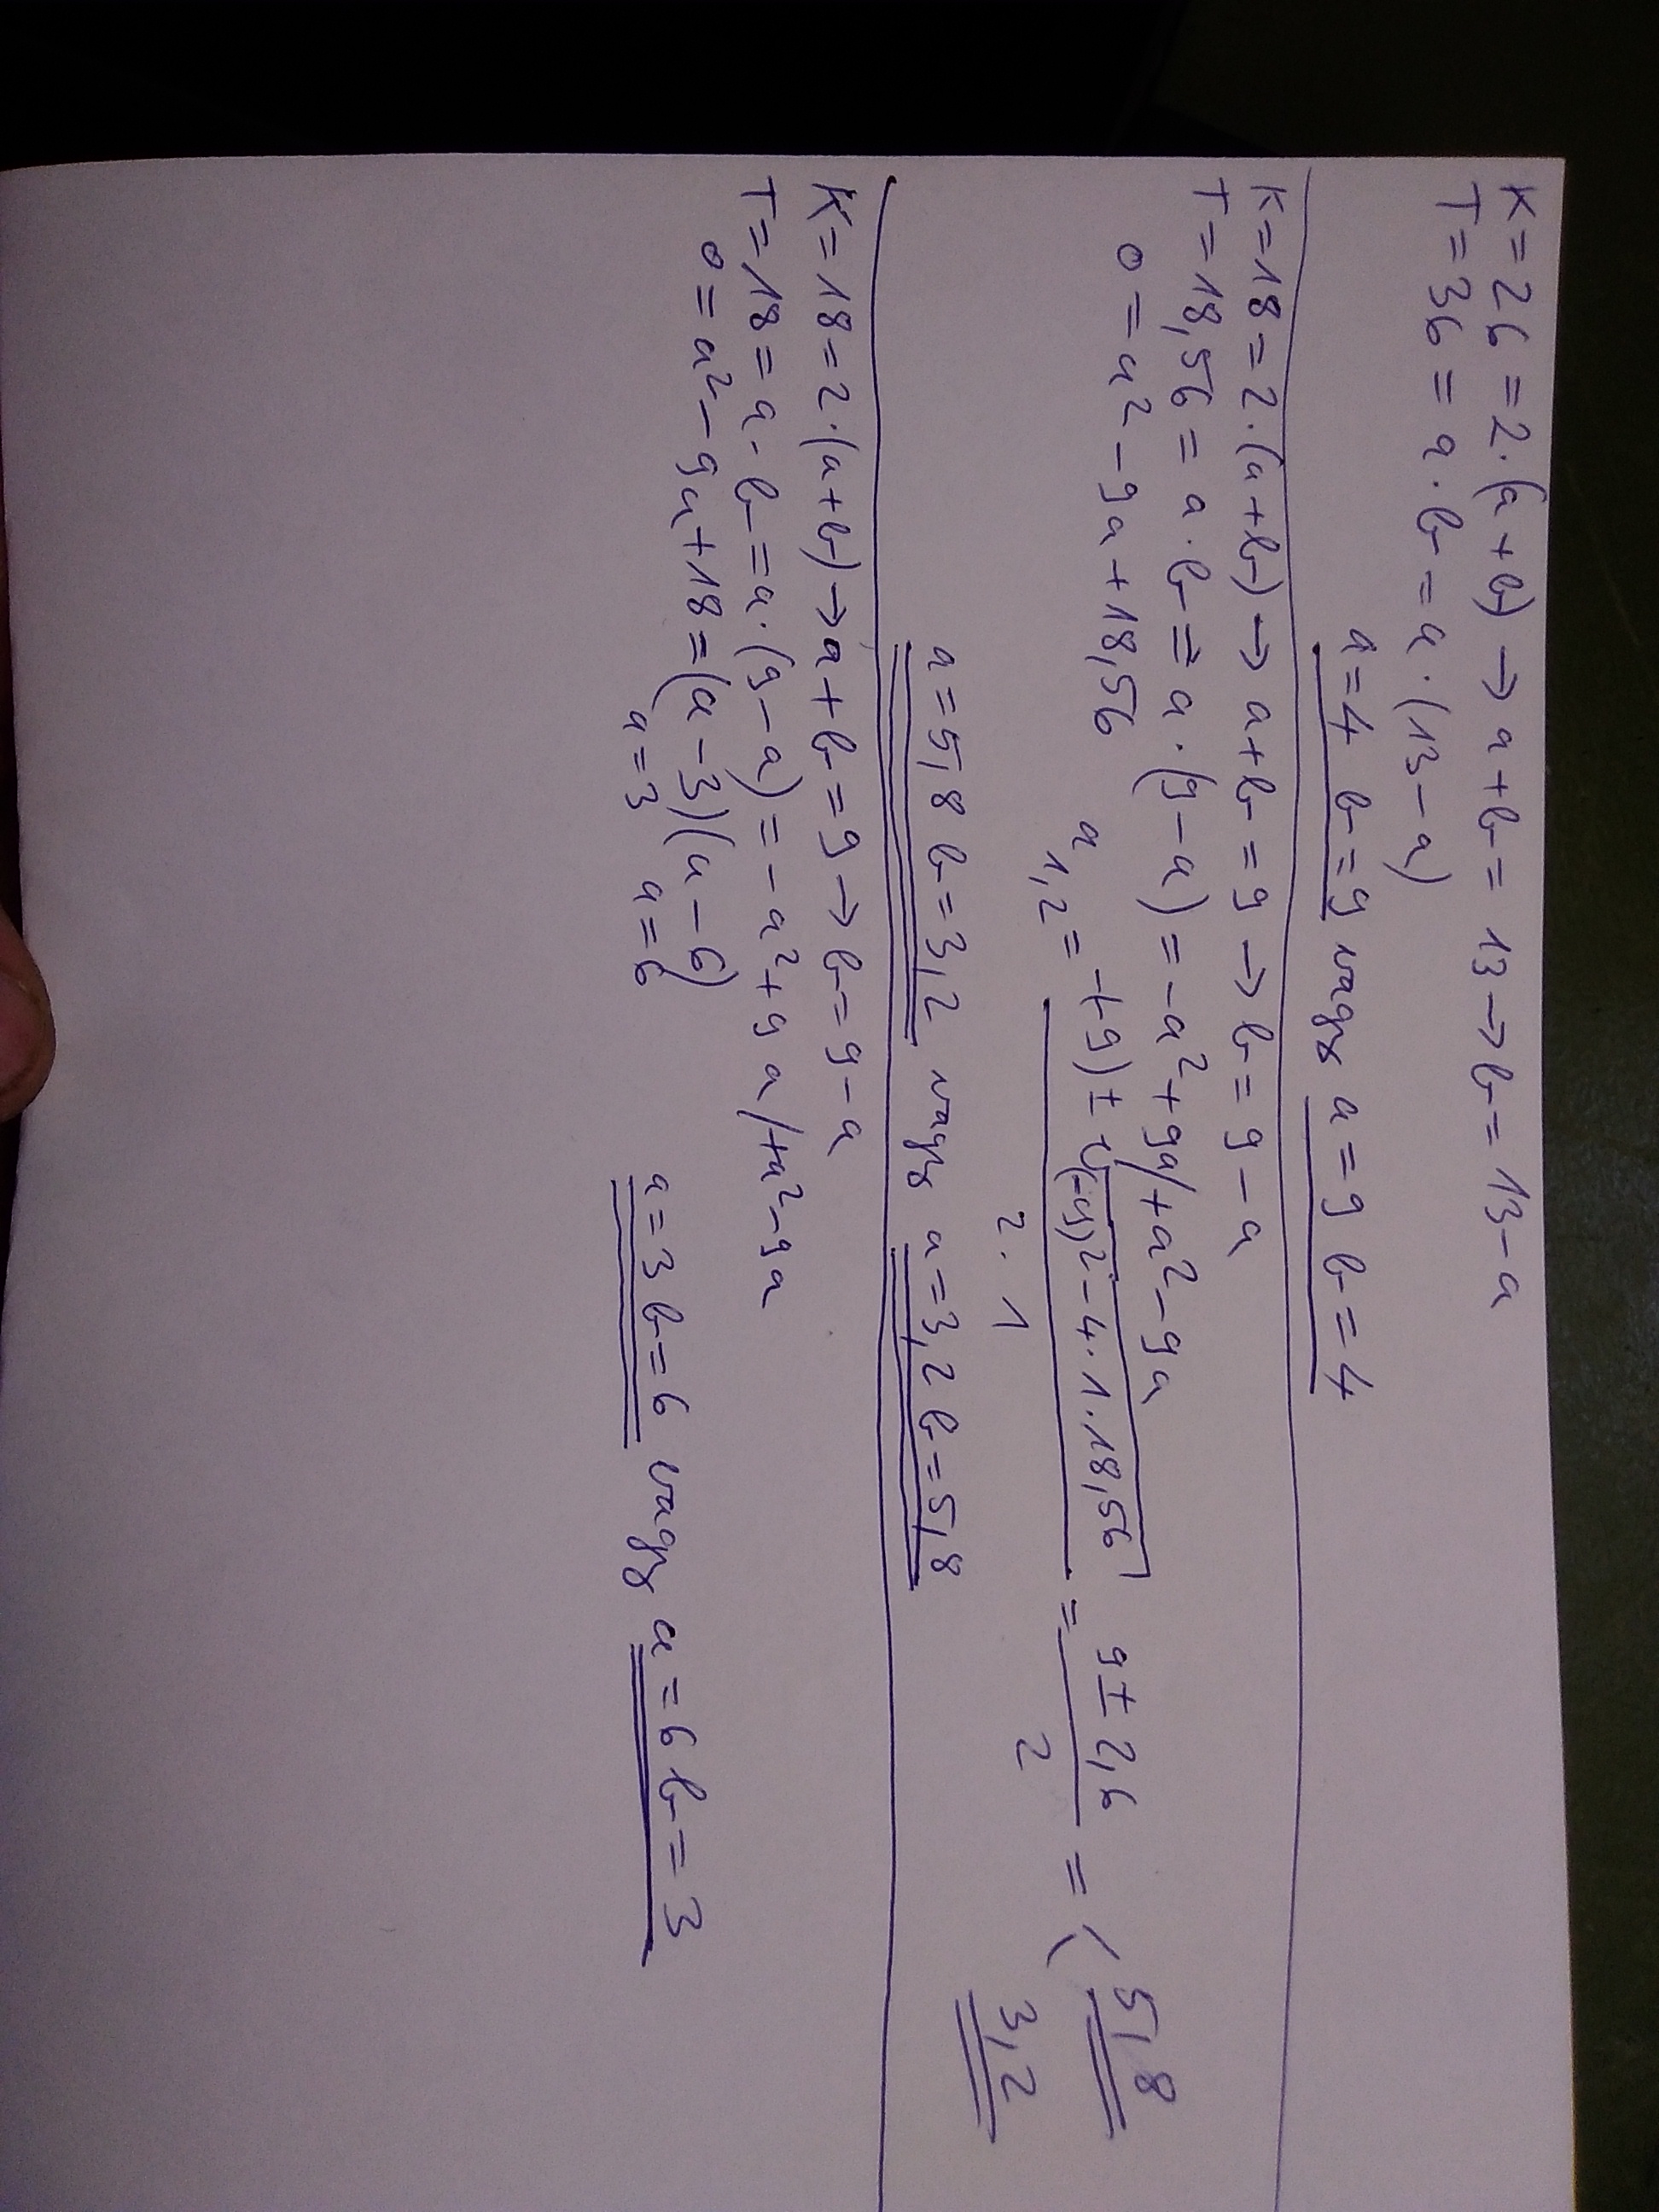 K = 26 = 2·(a+b) → a+b = 13 → b = 13-a
T = 36 = a·b = a·(13-a)
a=4 b=9 vagy a=9 b=4
K=18=2·(a+b) → a+b=9 → b=9-a
T=18,56 = a·b = a·(9-a) = -a²+9a /+a²-9a
0 = a²-9a+18,56
a1,2 = -(-9)±√(-9)²-4·1·18,56 / 2·1 = 9±2,6 / 2 = ⟨ 5,8
3,2
a=5,8 b=3,2 vagy a=3,2 b=5,8
K=18=2·(a+b) → a+b=9 → b=9-a
T=18=a·b=a·(9-a)=-a²+9a /+a²-9a
0=a²-9a+18=(a-3)(a-6)
a=3 a=6
a=3 b=6 vagy a=6 b=3